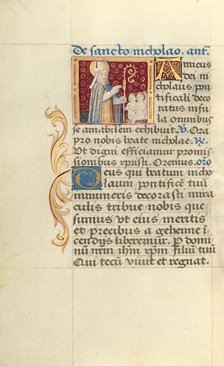 De sancto nicholao. ant̄.
Amicus
dei ni
cholaus pon
tificali deco
ratus infu
la omnibus
se amabilem exhibuit. V̄. O
ra pro nobis beate nicholae. Re.
Ut digni efficiamur promis
sionibus xpisti. Oremus. oro
Deus qui beatum nicho
laum pontificē tuū
innumeris decorasti mira
culis tribue nobis que
sumus ut eius meritis
et precibus a gehenne i
cendijs liberemur. P domi
nū nrm ihm xpm. filiū tuū
Qui tecū vivit et regnat.